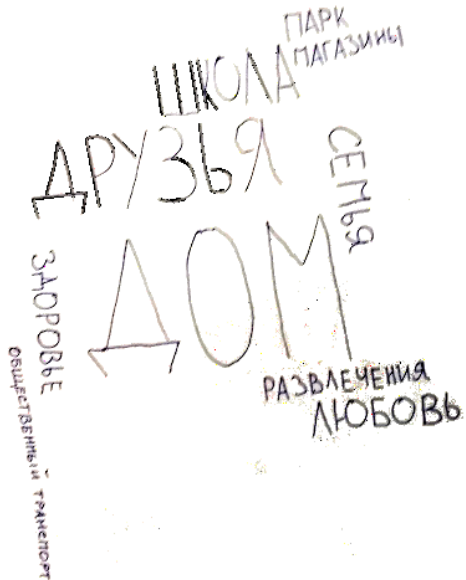 ПАРК
МАГАЗИНЫ
ШКОЛА
ДРУЗЬЯ
СЕМЬЯ
ДОМ
ЗДОРОВЬЕ
ОБЩЕСТВЕННЫЙ ТРАНСПОРТ
РАЗВЛЕЧЕНИЯ
ЛЮБОВЬ